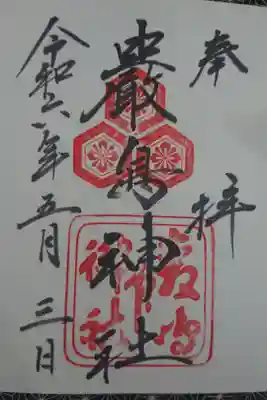 奉拝
嚴島神社
令和六年五月三日
嚴島
神社